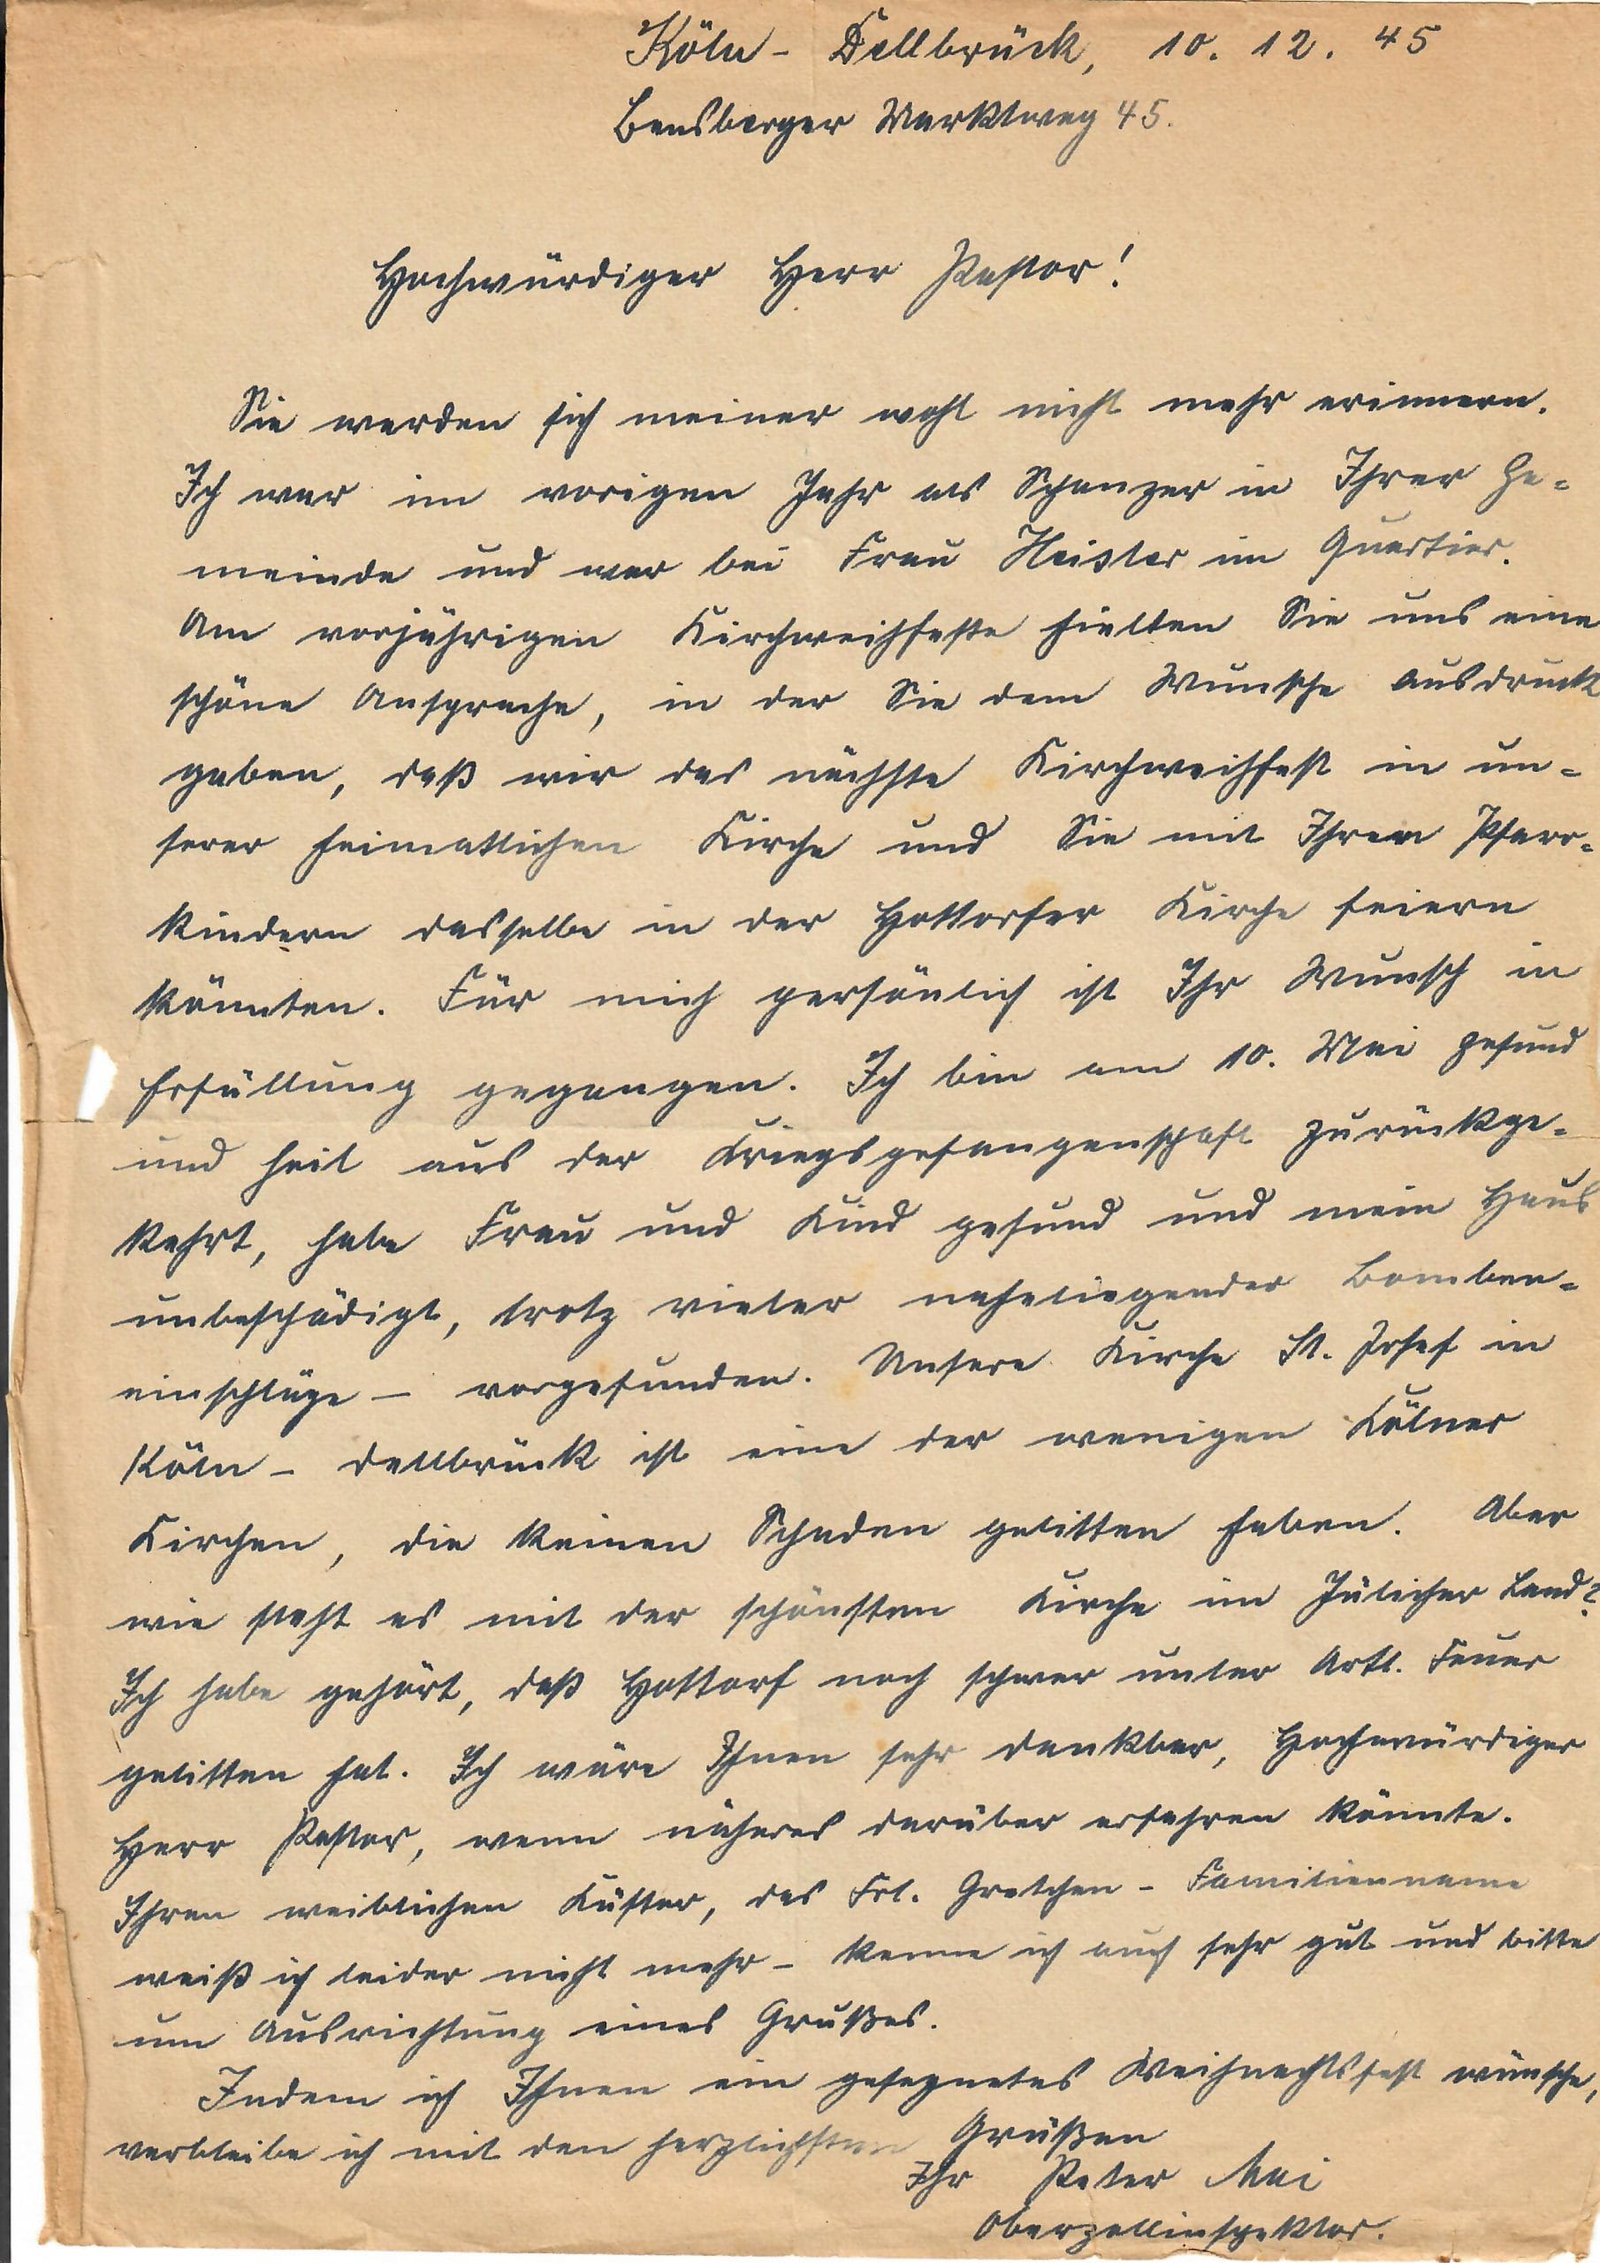 Köln - Dellbrück, 10. 12. 45
Bensberger Marktweg 45.
Hochwürdiger Herr Pastor!
Sie werden sich meiner wohl nicht mehr erinnern.
Ich war im vorigen Jahr als Schanzer in Ihrer Ge-
meinde und war bei Frau Heister im Quartier.
Am vorjährigen Kirchweihfeste hielten Sie uns eine
schöne Ansprache, in der Sie dem Wunsche Ausdruck
gaben, daß wir das nächste Kirchweihfest in un-
serer heimatlichen Kirche und Sie mit Ihren Pfarr-
kindern dasselbe in der Hottorfer Kirche feiern
könnten. Für mich persönlich ist Ihr Wunsch in
Erfüllung gegangen. Ich bin am 10. Mai gesund
und heil aus der Kriegsgefangenschaft zurückge-
kehrt, habe Frau und Kind gesund und mein Haus
unbeschädigt, trotz vieler naheliegender Bomben-
einschläge - vorgefunden. Unsere Kirche St. Josef in
Köln - Dellbrück ist eine der wenigen Kölner
Kirchen, die keinen Schaden gelitten haben. Aber
wie steht es mit der schönsten Kirche im Jülicher Land?
Ich habe gehört, daß Hottorf noch schwer unter Artl. Feuer
gelitten hat. Ich wäre Ihnen sehr dankbar, Hochwürdiger
Herr Pastor, wenn näheres darüber erfahren könnte.
Ihren weiblichen Küster, das Frl. Gretchen - Familienname
weiß ich leider nicht mehr - kenne ich auch sehr gut und bitte
um Ausrichtung eines Grußes.
Indem ich Ihnen ein gesegnetes Weihnachtsfest wünsche,
verbleibe ich mit den herzlichsten Grüßen
Ihr Peter Mai
Oberzollinspektor.